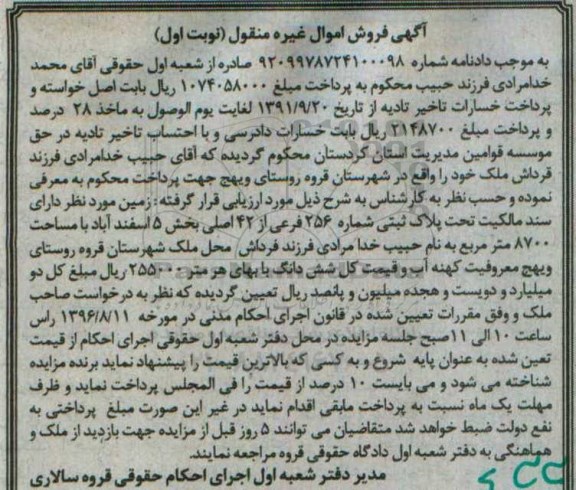 آگهی فروش اموال غیره منقول (نوبت اول)
به موجب دادنامه شماره ۹۲۰۹۹۷۸۷۲۴۱۰۰۰۹۸ صادره از شعبه اول حقوقی آقای محمد
خدامرادی فرزند حبیب محکوم به پرداخت مبلغ ۱۰۷۴۰۵۸۰۰۰ ریال بابت اصل خواسته و
پرداخت خسارات تاخیر تادیه از تاریخ ۱۳۹۱/۹/۲۰ لغایت یوم الوصول به ماخذ ۲۸ درصد
و پرداخت مبلغ ۲۱۴۸۷۰۰ ریال بابت خسارات دادرسی و با احتساب تاخیر تادیه در حق
موسسه قوامین مدیریت استان کردستان محکوم گردیده که آقای حبیب خدامرادی فرزند
قرداش ملک خود را واقع در شهرستان قروه روستای ویهج جهت پرداخت محکوم به معرفی
نموده و حسب نظر به کارشناس به شرح ذیل مورد ارزیابی قرار گرفته: زمین مورد نظر دارای
سند مالکیت تحت پلاک ثبتی شماره ۲۵۶ فرعی از ۴۲ اصلی بخش ۵ اسفند آباد با مساحت
۸۷۰۰ متر مربع به نام حبیب خدا مرادی فرزند فرداش محل ملک شهرستان قروه روستای
ویهج معروفیت کهنه آب و قیمت کل شش دانگ با بهای هر متر ۲۵۵۰۰۰ ریال مبلغ کل دو
میلیارد و دویست و هجده میلیون و پانصد ریال تعیین گردیده که نظر به درخواست صاحب
ملک و وفق مقررات تعیین شده در قانون اجرای احکام مدنی در مورخه ۱۳۹۶/۸/۱۱ راس
ساعت ۱۰ الی ۱۱ صبح جلسه مزایده در محل دفتر شعبه اول حقوقی اجرای احکام از قیمت
تعین شده به عنوان پایه شروع و به کسی که بالاترین قیمت را پیشنهاد نماید برنده مزایده
شناخته می شود و می بایست ۱۰ درصد از قیمت را فی المجلس پرداخت نماید و ظرف
مهلت یک ماه نسبت به پرداخت مابقی اقدام نماید در غیر این صورت مبلغ پرداختی به
نفع دولت ضبط خواهد شد متقاضیان می توانند ۵ روز قبل از مزایده جهت بازدید از ملک و
هماهنگی به دفتر شعبه اول دادگاه حقوقی قروه مراجعه نمایند.
مدیر دفتر شعبه اول اجرای احکام حقوقی قروه سالاری